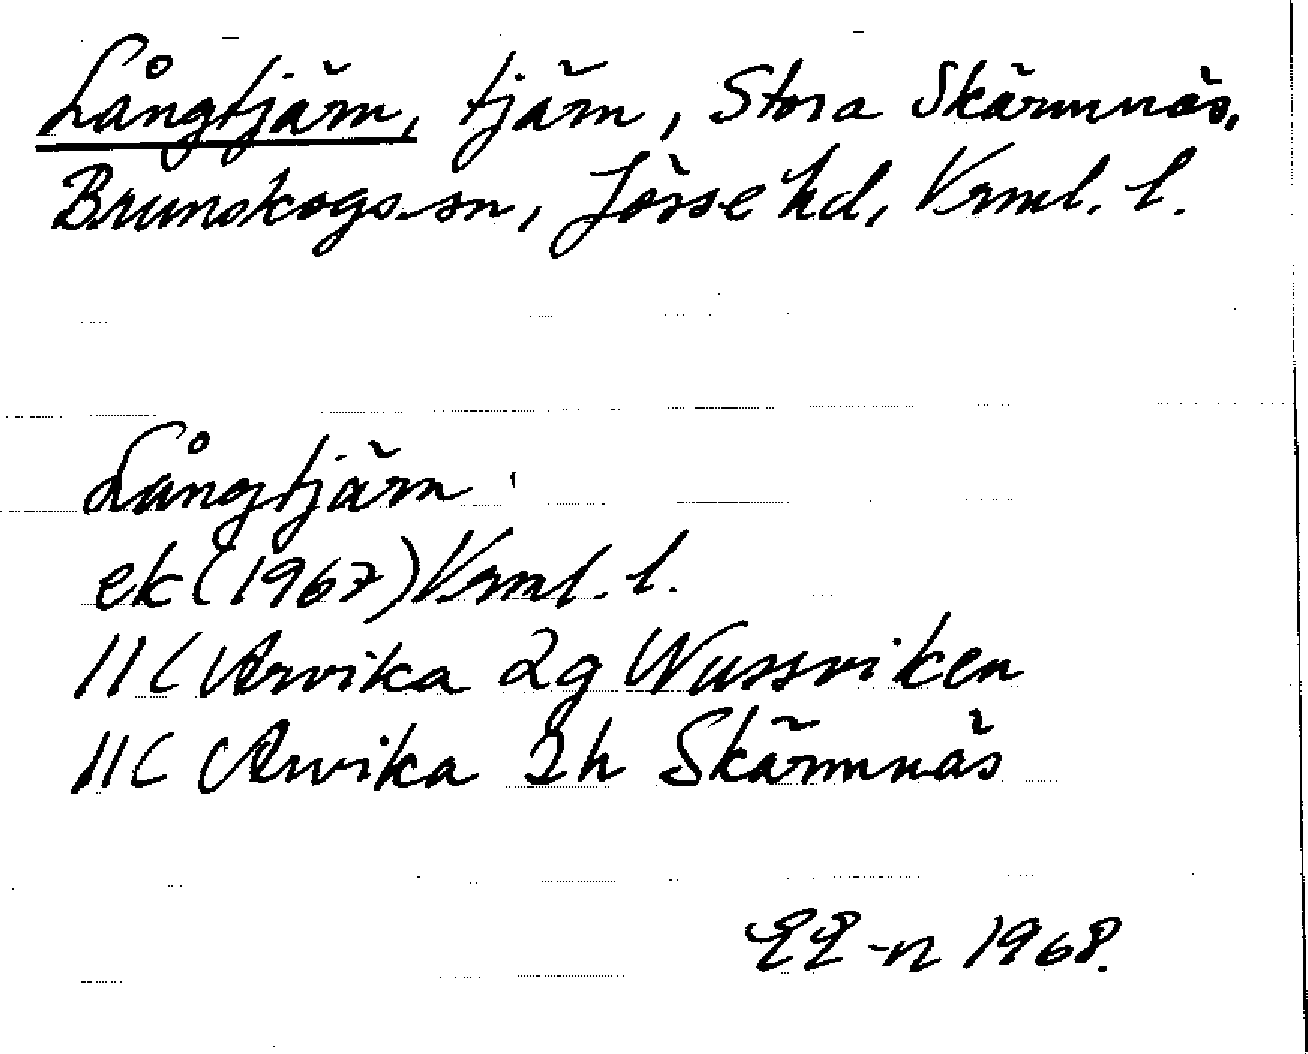 Långtjärn, tjärn, Stora Skärmnäs,
Brunskogs sn, Jösse hd, Vrml. l.
Långtjärn
ek (1967) Vrml. l.
11C Arvika 2g Wussviken
11C Arvika 2h Skärmnäs
EE-n 1968.